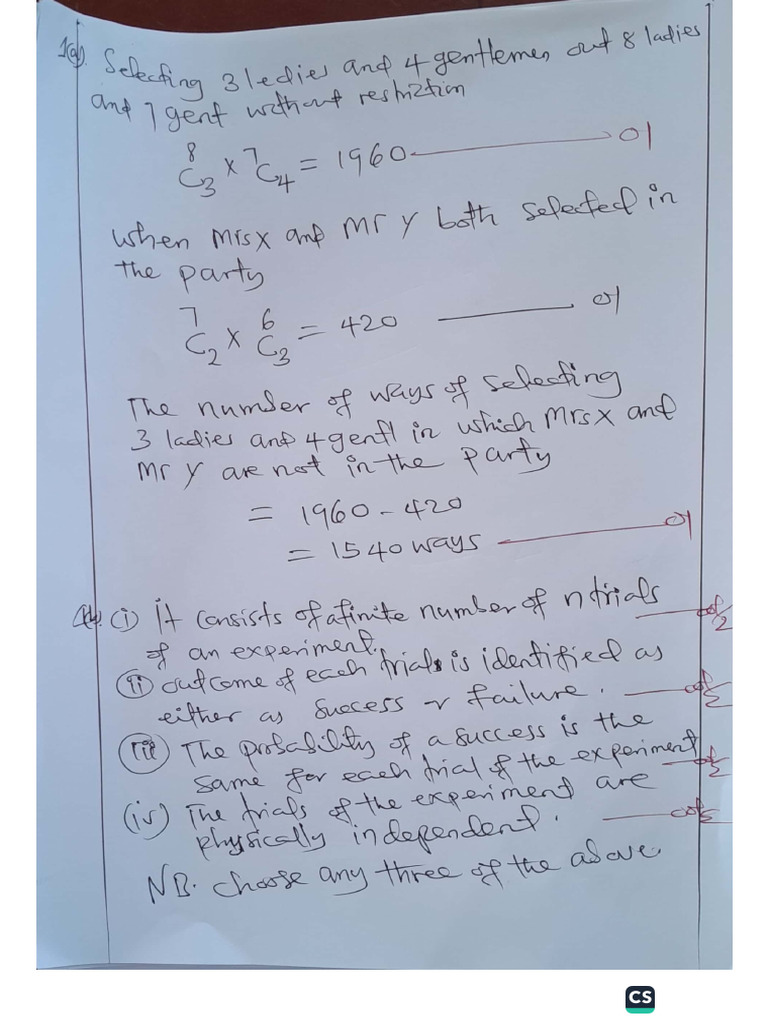 1(a). Selecting 3 ledies and 4 gentlemen out 8 ladies
and 7 gent without restriction
⁸C₃ x ⁷C₄ = 1960 01
when Mrs X and Mr Y both selected in
the party
⁷C₂ x ⁶C₃ = 420 01
The number of ways of selecting
3 ladies and 4 gentl in which Mrs X and
Mr Y are not in the party
= 1960 - 420
= 1540 ways 01
(i) It consists of a finite number of n trials
of an experiment.
(ii) outcome of each trials is identified as
either as success or failure.
(iii) The probability of a success is the
same for each trial of the experiment
(iv) The trials of the experiment are
physically independent.
NB. choose any three of the above.
CS